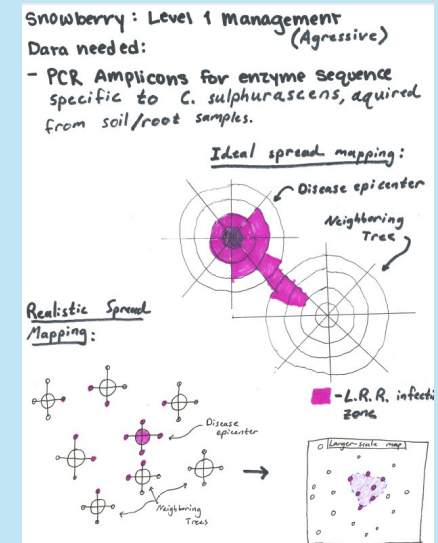 Snowberry: Level 1 Management
(Agressive)
Data needed:
- PCR Amplicons for enzyme sequence
specific to C. sulphurascens, aquired
from soil/root samples.
Ideal spread mapping:
Disease epicenter
Neighboring
Tree
Realistic Spread
Mapping:
-L.R.R. infecti
zone
Disease
epicenter
Larger-scale map
Neighboring
Trees